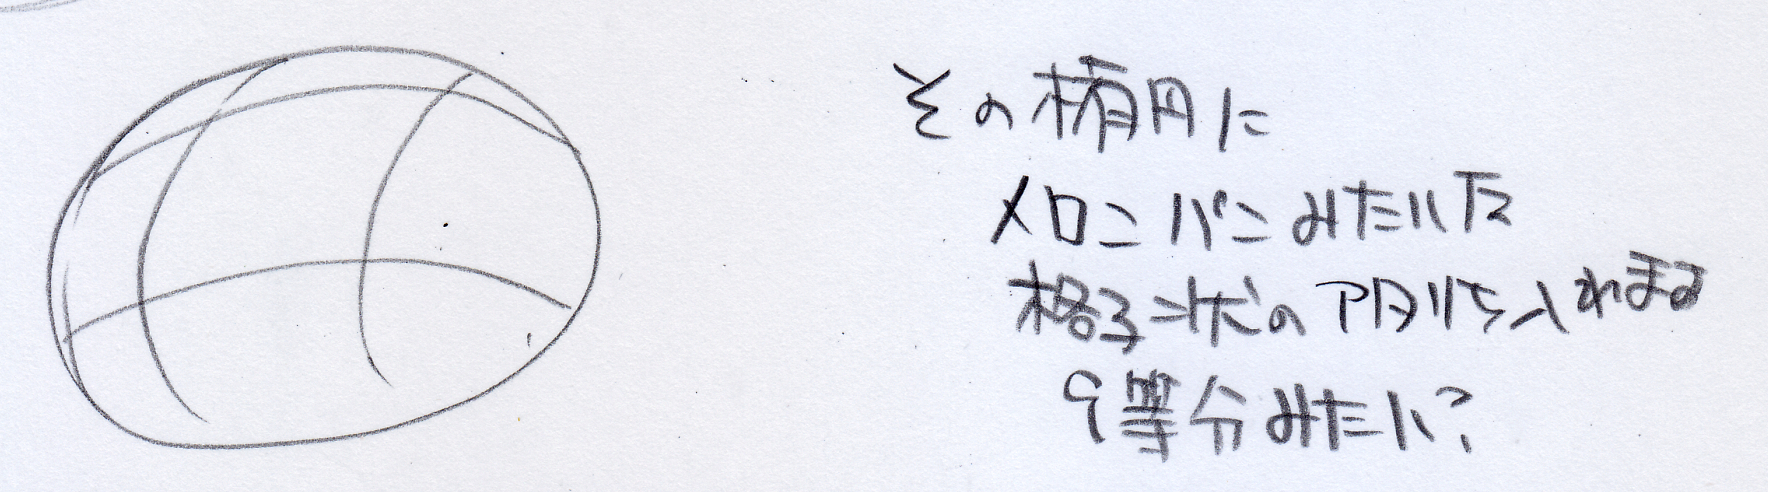 その楕円に
メロンパンみたいな
格子状のアタリを入れます
9等分みたいに?